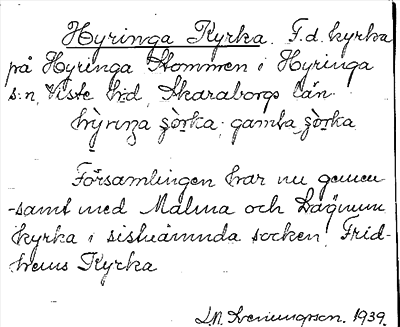 Hyringa Kyrka. F.d. kyrka
på Hyringa Stommen i Hyringa
s:n, Viste hd, Skaraborgs län.
hỳrıŋa ʒòrka, gamla ʒòrka
Församlingen har nu gemen-
-samt med Malma och Längnum
kyrka i sistnämnda socken, Frid-
hems Kyrka
1939.